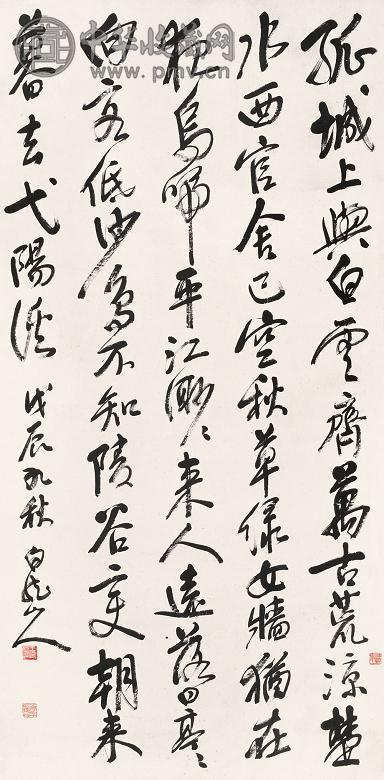 孤城上與白雲齊萬古荒涼楚
水西官舍已空秋草緑女牆猶在
夜烏啼平江渺〻来人遠落日亭〻
向客低沙鳥不知陵谷变朝来
暮去弋陽溪 戊辰秋 白龍山人
中华收藏网
www.pmv.cn